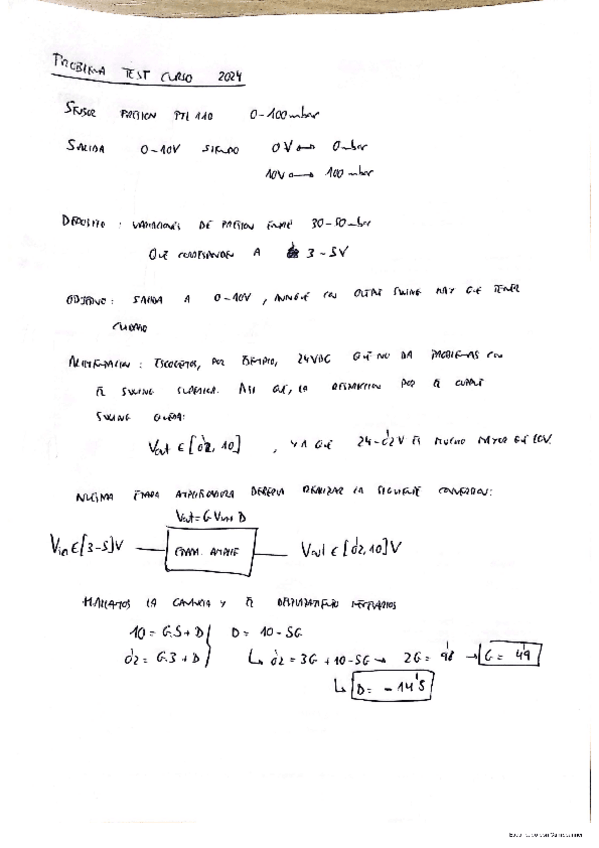 PROBLEMA TEST CURSO 2024
SENSOR PRESION PTI 110 0-100 mbar
SALIDA 0-10V SIENDO 0V ↔ 0 mbar
10V ↔ 100 mbar
DEPOSITO : VARIACIONES DE PRESION ENTRE 30-50 mbar
QUE CORRESPONDEN A 3-5V
OBJETIVO: SALIDA A 0-10V, AUNQUE CON OUTPUT SWING HAY QUE TENER
CUIDADO
ALIMENTACION : ESCOGEMOS, POR EJEMPLO, 24VDC QUE NO DA PROBLEMAS CON
EL SWING SUPERIOR. ASI QUE, LA RESTRICCION POR EL OUTPUT
SWING QUEDA:
Vout ∈ [0'2, 10] , YA QUE 24-0'2V ES MUCHO MAYOR QUE 10V.
NUESTRA ETAPA AMPLIFICADORA DEBERIA REALIZAR LA SIGUIENTE CONVERSION:
Vout = G·Vin + D
Vin ∈ [3-5]V ETAPA AMPLIF Vout ∈ [0'2, 10] V
HALLAMOS LA GANANCIA Y EL DESPLAZAMIENTO NECESARIOS
10 = G·5 + D D = 10 - 5G
0'2 = G·3 + D ↳ 0'2 = 3G + 10 - 5G → 2G = 9'8 → G = 4'9
↳ D = -14'5